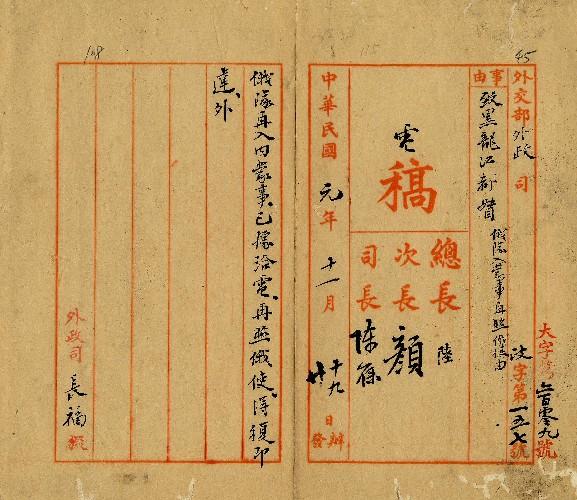 45
外交部外政司
事由
致黑龍江都督
俄隊入蒙事再照俄使由
大字第六百零九號
政字第一五七號
電
稿
總長 陸
次長 顏
司長 陳籙
中華民國元年十一月
十九日辦
廿發
148
俄隊再入內蒙事已據洽電再照俄使得復即
達外
外政司 長福 擬